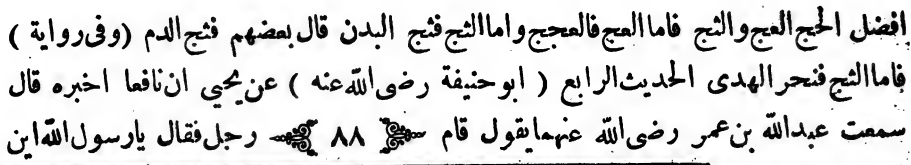 افضل الحج العج والثج فاما العج فالعجج واما الثج فثج البدن قال بعضهم فثج الدم (وفى رواية )
فاما الثج فنحر الهدى الحديث الرابع ( ابو حنيفة رضى الله عنه ) عن يحيي ان نافعا اخبره قال
سمعت عبدالله بن عمر رضى الله عنهما يقول قام ٨٨ رجل فقال يارسول الله اين